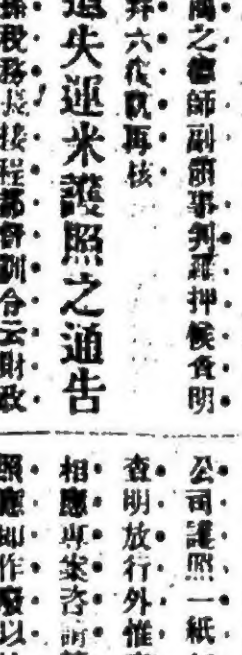 之德師副領事判羈押候查明
弈六夜凱再核
遺失運米護照之通告
孫稅務長接程都督訓令云財政
公司護照一紙
查明放行外惟
相應專案咨請
照應卽作廢以